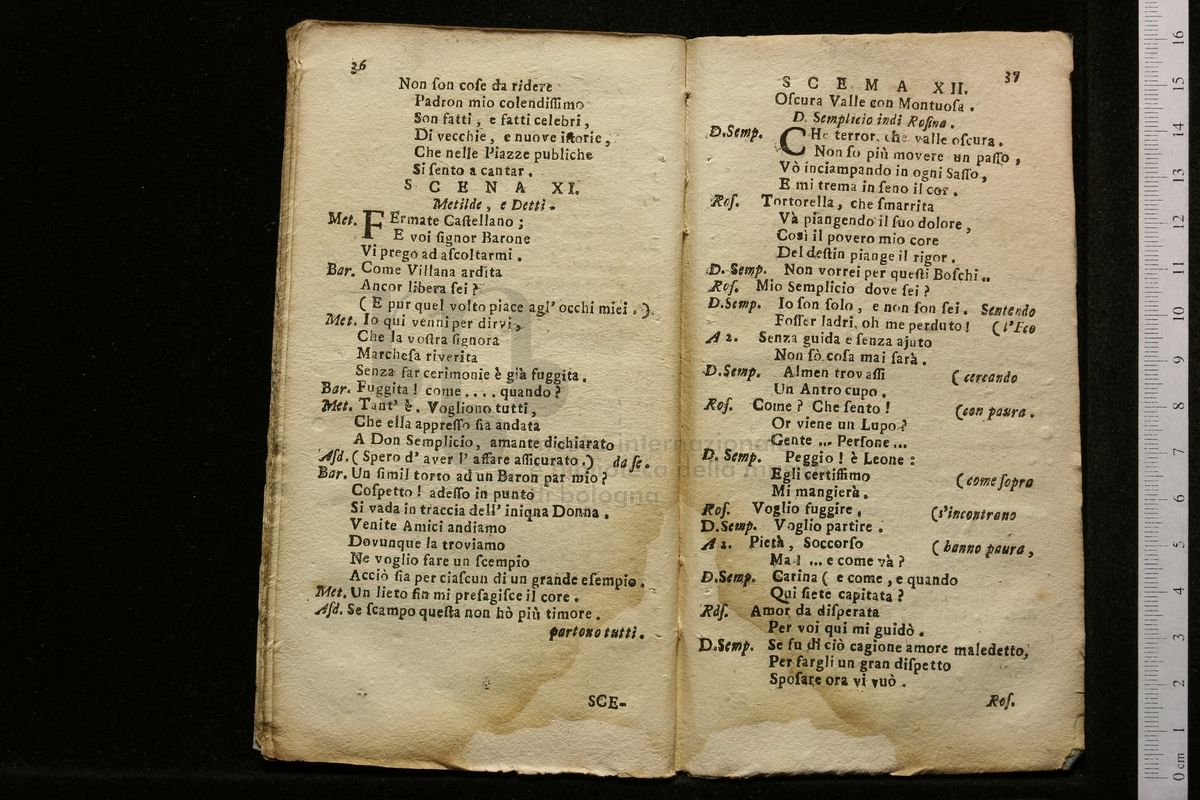 36
Non ſon coſe da ridere
Padron mio colendiſſimo
Son fatti, e fatti celebri,
Di vecchie, e nuove iſtorie,
Che nelle Piazze publiche
Si ſento a cantar.
SCENA XI.
Metilde, e Detti.
Met. FErmate Caſtellano;
E voi ſignor Barone
Vi prego ad aſcoltarmi.
Bar. Come Villana ardita
Ancor libera ſei?
(E pur quel volto piace agl' occhi miei.)
Met. Io qui venni per dirvi,
Che la voſtra ſignora
Marcheſa riverita
Senza far cerimonie è già fuggita.
Bar. Fuggita! come.... quando?
Met. Tant' è. Vogliono tutti,
Che ella appreſſo ſia andata
A Don Semplicio, amante dichiarato
Aſd. (Spero d' aver l' affare aſſicurato.) da ſe.
Bar. Un ſimil torto ad un Baron par mio?
Coſpetto! adeſſo in punto
Si vada in traccia dell' iniqua Donna.
Venite Amici andiamo
Dovunque la troviamo
Ne voglio fare un ſcempio
Acciò ſia per ciaſcun di un grande eſempio.
Met. Un lieto fin mi preſagiſce il core.
Aſd. Se ſcampo queſta non hò più timore.
partono tutti.
SCE-
37
SCEMA XII.
Oſcura Valle con Montuoſa.
D. Semplicio indi Roſina.
D.Semp. CHe terror, che valle oſcura.
Non ſo più movere un paſſo,
Vò inciampando in ogni Saſſo,
E mi trema in ſeno il cor.
Roſ. Tortorella, che ſmarrita
Và piangendo il ſuo dolore,
Così il povero mio core
Del deſtin piange il rigor.
D. Semp. Non vorrei per queſti Boſchi..
Roſ. Mio Semplicio dove ſei?
D.Semp. Io ſon ſolo, e non ſon ſei. Sentendo
Foſſer ladri, oh me perduto! (l'Eco
A 2. Senza guida e ſenza ajuto
Non ſò coſa mai ſarà.
D.Semp. Almen trovaſſi (cercando
Un Antro cupo.
Roſ. Come? Che ſento! (con paura.
Or viene un Lupo?
Gente ... Perſone...
D. Semp. Peggio! è Leone:
Egli certiſſimo (come ſopra
Mi mangierà.
Roſ. Voglio fuggire, (s'incontrano
D.Semp. Voglio partire.
A 2. Pietà, Soccorſo (hanno paura,
Ma! ... e come và?
D.Semp. Carina (e come, e quando
Qui ſiete capitata?
Roſ. Amor da diſperata
Per voi qui mi guidò.
D.Semp. Se fu di ciò cagione amore maledetto,
Per fargli un gran diſpetto
Spoſare ora vi vuò.
Roſ.
internazionale
della
di bologna
0 cm 1 2 3 4 5 6 7 8 9 10 11 12 13 14 15 16